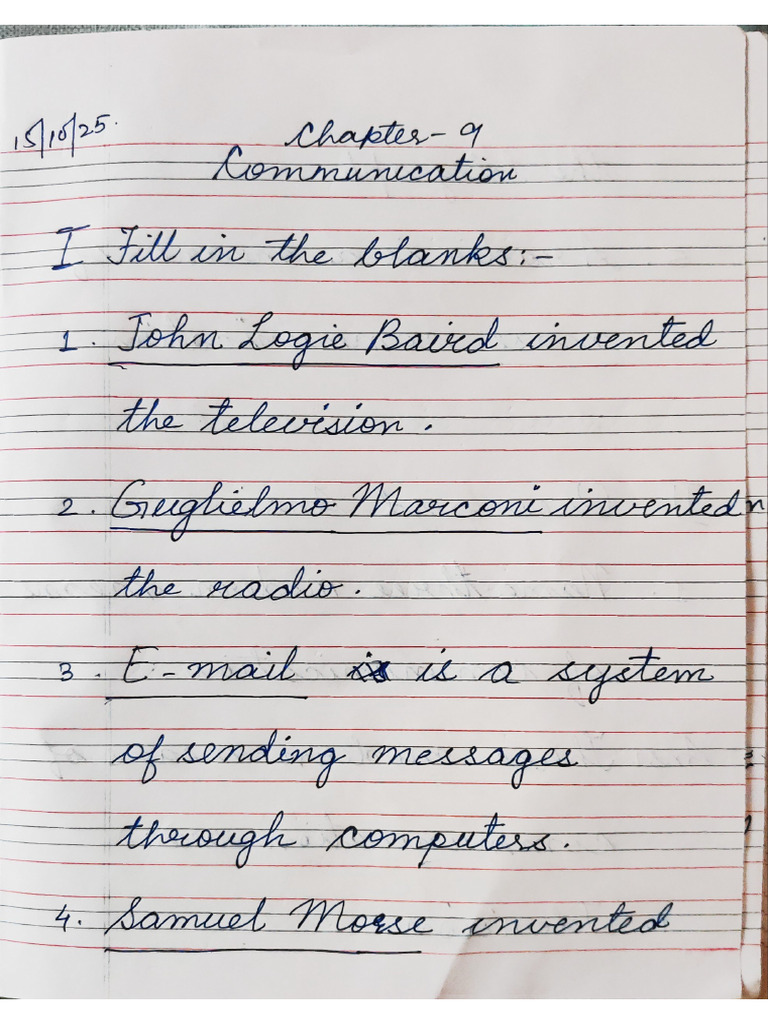 15/10/25.
Chapter - 9
Communication
I Fill in the blanks:-
1. John Logie Baird invented
the television.
2. Guglielmo Marconi invented
the radio.
3. E-mail is a system
of sending messages
through computers.
4. Samuel Morse invented